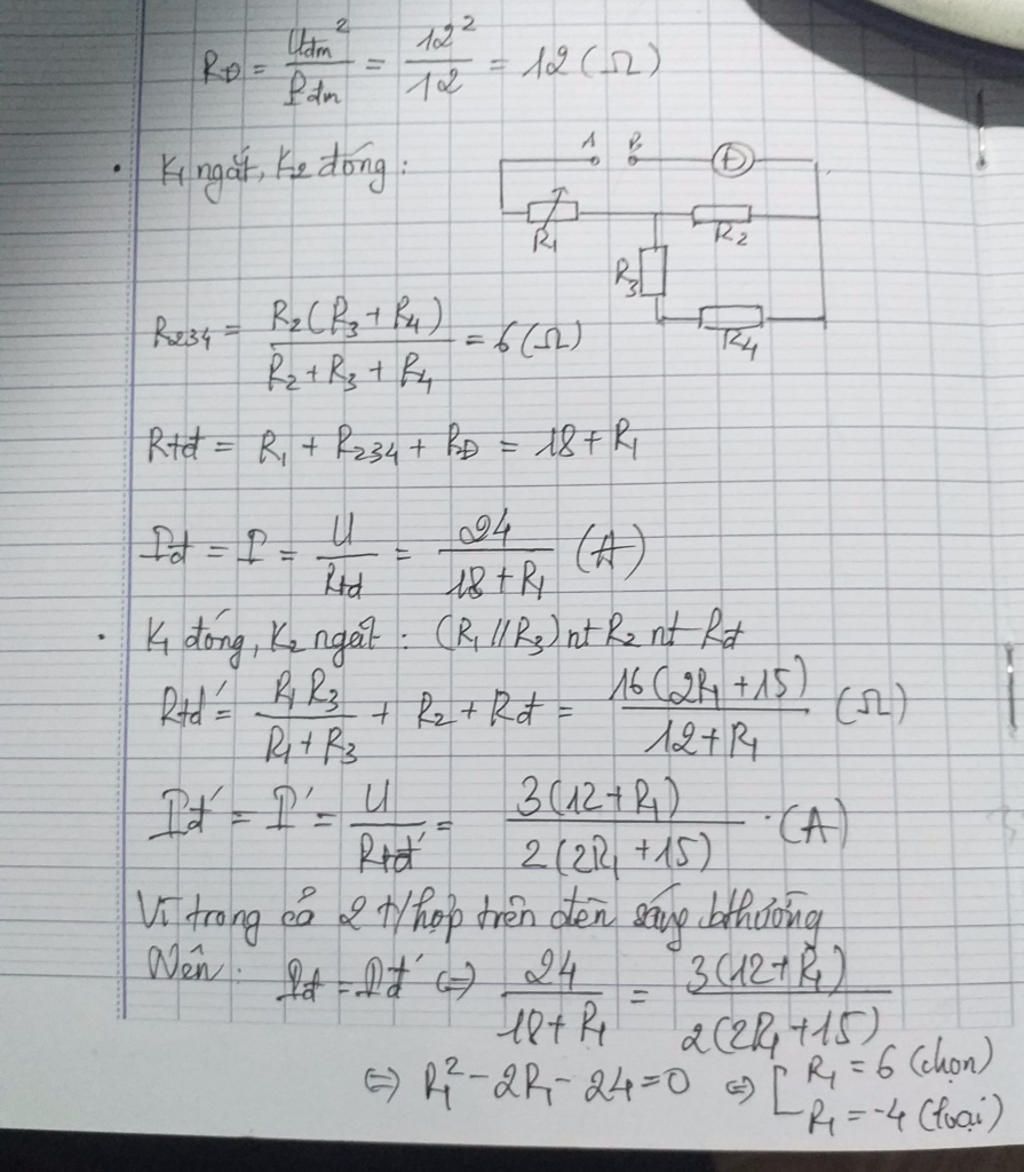 RĐ = Uđm² / Pđm = 12² / 12 = 12 (Ω)
• K₁ ngắt, K₂ đóng :
A B Đ
R₁ R₂
R₃
R₄
R₂₃₄ = R₂(R₃ + R₄) / R₂ + R₃ + R₄ = 6 (Ω)
Rtđ = R₁ + R₂₃₄ + RĐ = 18 + R₁
Iđ = I = U / Rtđ = 24 / 18 + R₁ (A)
• K₁ đóng, K₂ ngắt : (R₁ // R₃) nt R₂ nt Rđ
Rtđ' = R₁ R₃ / R₁ + R₃ + R₂ + Rđ = 16(2R₁ + 15) / 12 + R₁ (Ω)
Iđ' = I' = U / Rtđ' = 3(12 + R₁) / 2(2R₁ + 15) . (A)
Vì trong cả 2 t/hợp trên đèn sáng bthường
Nên : Iđ = Iđ' ⇔ 24 / 18 + R₁ = 3(12 + R₁) / 2(2R₁ + 15)
⇔ R₁² - 2R₁ - 24 = 0 ⇔ [ R₁ = 6 (chọn)
R₁ = -4 (loại)